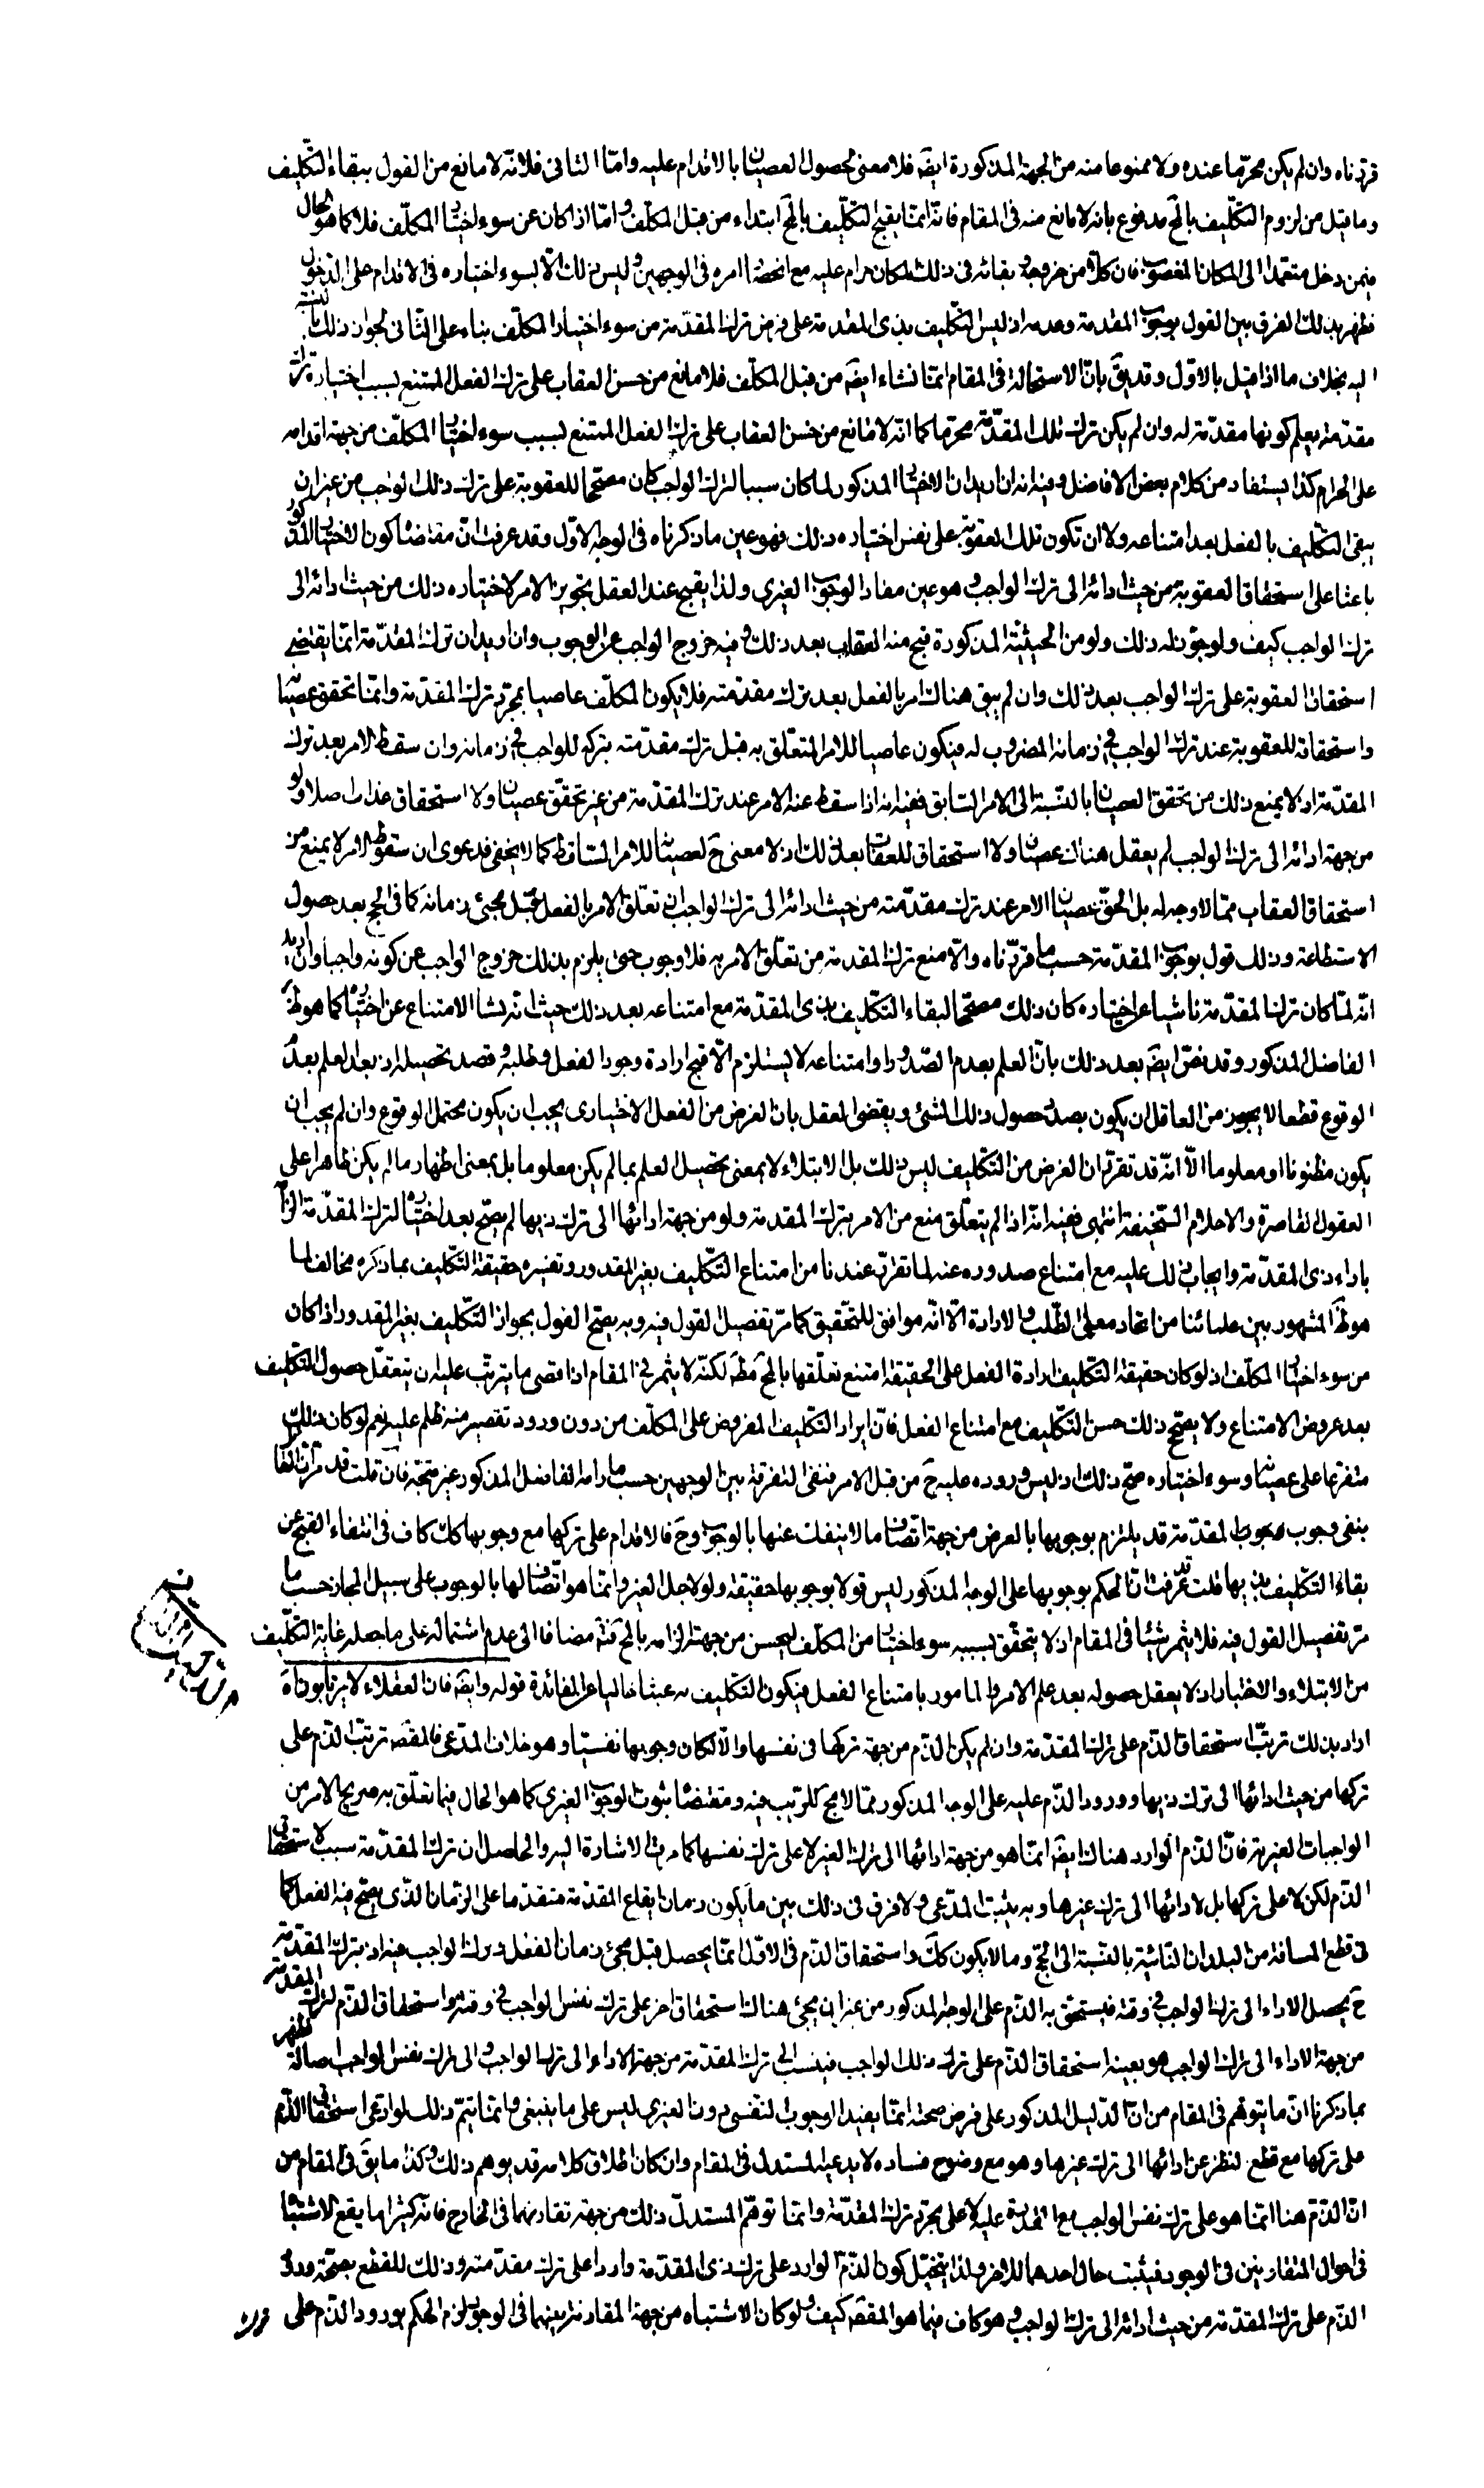 قررناه وان لم يكن محرّما عنده ولا ممنوعا منه من الجهة المذكورة ايضَ فلا معنى لحصول العصيان بالاقدام عليه وامّا الثانى فلانّه لا مانع من القول ببقاء التكليف
وما قيل من لزوم التكليف بالمحَ مدفوع بانه لا مانع منه فى المقام فانّه انما يقبح التكليف بالمحَ ابتداء من قبل المكلّف وامّا اذا كان عن سوء اختيار المكلّف فلا كما هو الحال
فيمن دخل متعمدا الى المكان المغصوب فان كلّا من خروجه وبقائه فى ذلك المكان حرام عليه مع انحصار امره فى الوجهين وليس ذلك الّا بسوء اختياره فى الاقدام على الدخول
فظهر بذلك الفرق بين القول بوجوب المقدمة وعدمه اذ ليس التكليف بذى المقدمة على فرض ترك المقدّمة من سوء اختيار المكلّف بناء على الثّانى لجواز ذلك بالنسبة
اليه بخلاف ما اذا قيل بالاوّل وقد يقَ بانّ الاستحالة فى المقام انمّا نشاء ايضَ من قبل المكلّف فلا مانع من حسن العقاب على ترك الفعل الممتنع بسبب اختياره ترك
مقدّمة يعلم كونها مقدّمة له وان لم يكن ترك تلك المقدّمة محرّما كما انّه لا مانع من حسن العقاب على ترك الفعل الممتنع بسبب سوء اختيار المكلّف من جهة اقدامه
على الحرام كذا يستفاد من كلام بعض الافاضل وفيه انه ان اريد ان الاختيار المذكور لما كان سببا لترك الواجب كان مصحّحا للعقوبة على ترك ذلك الواجب من غير ان
يبقى التكليف بالفعل بعد امتناعه ولا ان تكون تلك العقوبة على نفس اختياره ذلك فهو عين ما ذكرناه فى الوجه الاوّل وقد عرفت انّ مقتضاه كون الاختيار المذكور
باعثا على استحقاق العقوبة من حيث ادائه الى ترك الواجب وهو عين مفاد الوجوب الغيرى ولذا يقبح عند العقل تجويز الامر لاختياره ذلك من حيث ادائه الى
ترك الواجب كيف ولو جوّز له ذلك ولو من الحيثيّة المذكورة قبح منه العقاب بعد ذلك وفيه خروج الواجب عن الوجوب وان اريد ان ترك المقدّمة انما يقتضى
استحقاق العقوبة على ترك الواجب بعد ذلك وان لم يبق هناك امر بالفعل بعد ترك مقدّمته فلا يكون المكلّف عاصيا بمجرّد ترك المقدّمة وانمّا تحقق عصيانه
واستحقاقه للعقوبة عند ترك الواجب فى زمانه المضروب له فيكون عاصيا للامر المتعلّق به قبل ترك مقدّمته بتركه للواجب فى زمانه وان سقط الامر بعد ترك
المقدّمة اذ لا يمنع ذلك من تحقق العصيان بالنّسبة الى الامر السّابق ففيه انه اذا سقط عنه الامر عند ترك المقدّمة من غير تحقق عصيان ولا استحقاق عذاب اصلا ولو
من جهة ادائه الى ترك الواجب لم يعقل هناك عصيان ولا استحقاق للعقاب بعد ذلك اذ لا معنى حَ لعصيان للامر السّاقط كما لا يخفى فدعوى ان سقوط الامر لا يمنع من
استحقاق العقاب ممّا لا وجه له بل الحقّ عصيان الامر عند ترك مقدّمته من حيث ادائه الى ترك الواجب ان تعلّق الامر بالفعل قبل مجئ زمانه كما فى الحج بعد حصول
الاستطاعة وذلك قول بوجوب المقدّمة حسب ما قررّناه والّا منع ترك المقدمة من تعلّق الامر به فلا وجوب حتى يلزم بذلك خروج الواجب عن كونه واجبا وان اريد
انّه لمّا كان ترك المقدّمة ناشيا عن اختياره كان ذلك مصحّحا لبقاء التّكليف بذى المقدّمة مع امتناعه بعد ذلك حيث انّه نشا الامتناع عن اختياره كما هو ظَ
الفاضل المذكور وقد نصّ ايضَ بعد ذلك بانّ العلم بعدم الصّدور او امتناعه لا يستلزم الّا قبح ارادة وجود الفعل وطلبه وقصد تحصيله اذ بعد العلم بعدم
الوقوع قطعا لا يجوز من العاقل ان يكون بصدد حصول ذلك الشئ ويقضى العقل بان الغرض من الفعل الاختيارى يجب ان يكون محتمل الوقوع وان لم يجب ان
يكون مظنونا او معلوما الّا انّه قد تقرّر ان الغرض من التّكليف ليس ذلك بل الابتلاء لا بمعنى تحصيل العلم بما لم يكن معلوما بل بمعنى اظهار ما لم يكن ظاهرا على
العقول القاصرة والاحلام السّخيفة انتهى ففيه انّه اذا لم يتعلّق منع من الامر بترك المقدمة ولو من جهة ادائها الى ترك ذيها لم يصحّ بعد اختياره لترك المقدّمة الزامه
باداء ذى المقدّمة وايجاب ذلك عليه مع امتناع صدوره عنه لما تقرّر عندنا من امتناع التّكليف بغير المقدور وتفسيره حقيقة التّكليف بما ذكره مخالف لما
هو ظَ المشهور بين علمائنا من اتحاد معنى الطّلب والارادة الّا انّه موافق للتّحقيق كما مرّ تفصيل القول فيه وبه يصحّ القول بجواز التّكليف بغير المقدور اذا كان
من سوء اختيار المكلّف اذ لو كان حقيقة التّكليف ارادة الفعل على الحقيقة امتنع تعلّقها بالمحَ مطَ لكنّه لا يثمر فى المقام اذ اقصى ما يترتّب عليه ان يتعقّل حصول التّكليف
بعد عروض الامتناع ولا يصحّح ذلك حسن التّكليف مع امتناع الفعل فانّ ايراد التّكليف المفروض على المكلّف من دون ورود تقصير منه ظلم عليه نعم لو كان ذلك
متفرّعا على عصيانه وسوء اختياره صحّ ذلك اذ ليس وروده عليه حَ من قبل الامر فنفى التفرقة بين الوجهين حسب ما رامه الفاضل المذكور غير متّجه فان قلت قد مرّ ان القائل
بنفى وجوب المقدّمة قد يلتزم بوجوبها بالعرض من جهة اتّصاف ما لا ينفك عنها بالوجوب وحَ فالاقدام على تركها مع وجوبها كك كاف فى انتفاء القبح عن
بقاء التّكليف بذيها قلت قد عرفت انّ الحكم بوجوبها على الوجه المذكور ليس قولا بوجوبها حقيقة ولو لاجل الغير وانمّا هو اتّصاف لها بالوجوب على سبيل المجاز حسب ما
مرّ تفصيل القول فيه فلا يثمر شيئا فى المقام اذ لا يتحقّق بسببه سوء اختيار من المكلّف ليحسن من جهته الزامه بالمحَ مضافا الى عدم اشتماله على ما جعله غاية التّكليف
من الابتلاء والاختبار اذ لا يعقل حصوله بعد علم الامر والمامور بامتناع الفعل فيكون التّكليف به عبثا خاليا عن الفائدة قوله وايضَ فان العقلاء لا يرتابون اه
اراد بذلك ترتّب استحقاق الذّم على ترك المقدّمة وان لم يكن الذّم من جهة تركها فى نفسها والّا لكان وجوبها نفسيّا وهو خلاف المدّعى فالمقصَ ترتّب الذّم على
تركها من حيث ادائها الى ترك ذيها وورود الذّم عليه على الوجه المذكور ممّا لا مجال للريب فيه ومقتضاه ثبوت الوجوب الغيرى كما هو الحال فيما تعلّق به صريح الامر من
الواجبات الغيرية فانّ الذّم الوارد هناك ايضَ انمّا هو من جهة ادائها الى ترك الغير لا على ترك نفسها كما مرت الاشارة اليه والحاصل ان ترك المقدّمة سبب لاستحقاق
الذّم لكن لا على تركها بل لادائها الى ترك غيرها وبه يثبت المدّعى ولا فرق فى ذلك بين ما يكون زمان ايقاع المقدّمة متقدّما على الزّمان الّذى يصحّ فيه الفعل كما
فى قطع المسافة من البلدان النّائية بالنّسبة الى الحجّ وما لا يكون كك واستحقاق الذّم فى الاوّل انمّا يحصل قبل مجئ زمان الفعل وترك الواجب فيه اذ بترك المقدّمة
حَ يحصل الاداء الى ترك الواجب فى وقته فيستحق به الذّم على الوجه المذكور من غير ان يجئ هناك استحقاق اخر على ترك نفس الواجب فى وقته واستحقاق الذّم لترك المقدّمة
من جهة الاداء الى ترك الواجب هو بعينه استحقاق الذّم على ترك ذلك الواجب فينسب الى ترك المقدّمة من جهة الاداء الى ترك الواجب والى ترك نفس الواجب اصالة فظهر
بما ذكرنا انّ ما يتوهّم فى المقام من انّ الدّليل المذكور على فرض صحّته انمّا يفيد الوجوب النّفسى دون الغيرى ليس على ما ينبغى وانمّا يتمّ ذلك لو ادّعى استحقاق الذّم
على تركها مع قطع النظر عن ادائها الى ترك غيرها وهو مع وضوح فساده لا يدعيه المستدل فى المقام وان كان اطلاق كلامه قد يوهم ذلك وكذا ما يقَ فى المقام من
انّ الذّم هنا انمّا هو على ترك نفس الواجب مع القدرة عليه لا على مجرّد ترك المقدّمة وانمّا توهّم المستدلّ ذلك من جهة تقارنهما فى الخارج فانّه كثيرا ما يقع الاشتباه
فى احوال المتقارنين فى الوجود فيثبت حال احدهما للاخر ولذا يتخيّل كون الذّم الوارد على ترك ذى المقدّمة واردا على ترك مقدّمته وذلك للقطع بصحّة ورود
الذّم على ترك المقدّمة من حيث ادائه الى ترك الواجب وهو كاف فيما هو المقصَ كيف ولو كان الاشتباه من جهة المقارنة بينهما فى الوجود لزم الحكم بورود الذّم على